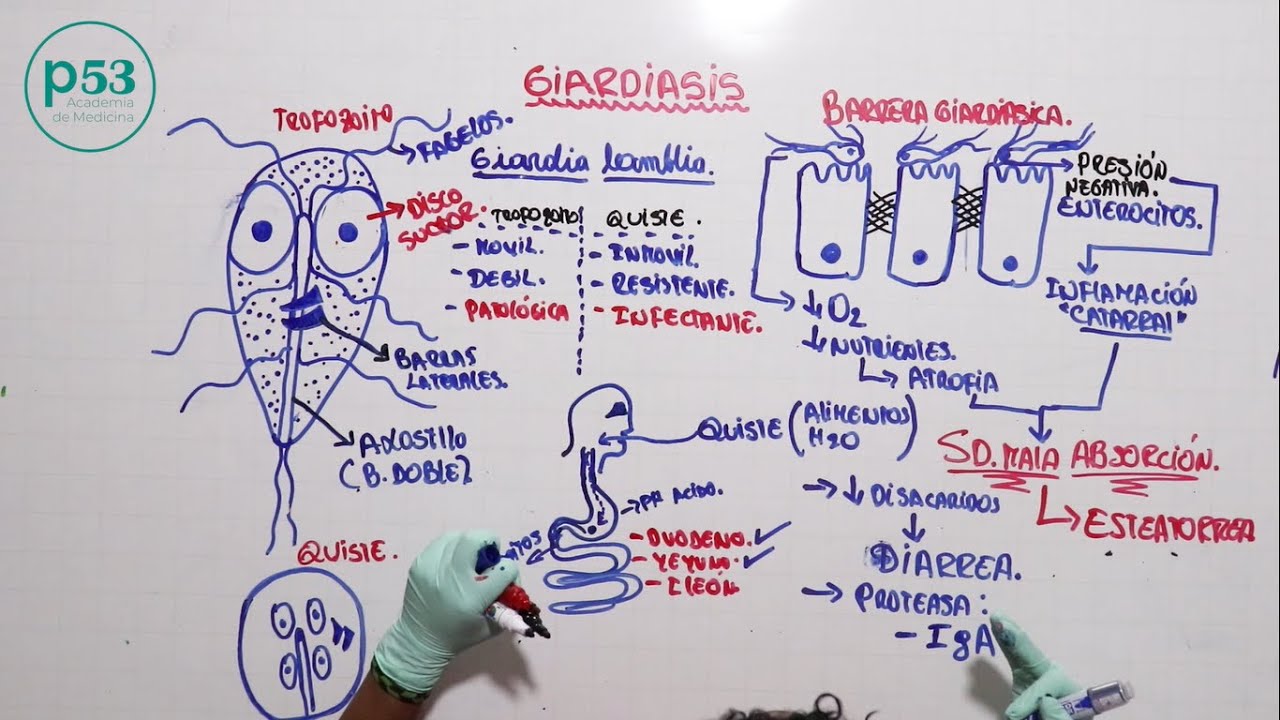 p53
Academia
de Medicina
GIARDIASIS
TROFOZOITO
FAGELOS.
Giardia Lamblia.
DISCO
SUCTOR.
TROFOZOITO
- MOVIL.
- DEBIL.
- PATOLÓGICA
QUISTE.
- INMOVIL.
- RESISTENTE.
- INFECTANTE.
BARRAS
LATERALES.
AXOSTILLO
(B. DOBLEZ)
QUISTE.
BARRERA GIARDIASICA.
PRESIÓN
NEGATIVA.
ENTEROCITOS.
INFLAMACIÓN
"CATARRAL"
↓ O2
↓ NUTRIENTES.
ATROFIA
SD. MALA ABSORCIÓN.
ESTEATORREA
QUISTE (ALIMENTOS
H2O)
PH ACIDO.
- DUODENO. ✓
- YEYUNO. ✓
- ILEÓN
→ ↓ DISACARIDOS
DIARREA.
→ PROTEASA:
- IgA